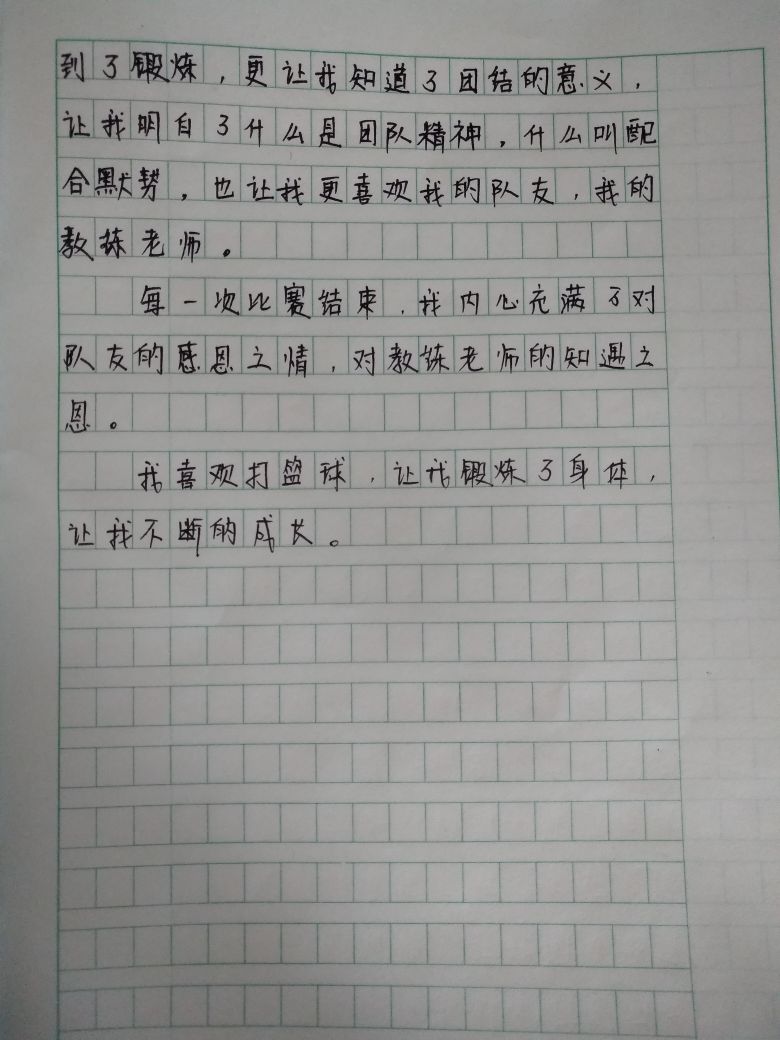 到了锻炼，更让我知道了团结的意义，
让我明白了什么是团队精神，什么叫配
合默契，也让我更喜欢我的队友，我的
教练老师。
每一次比赛结束，我内心充满了对
队友的感恩之情，对教练老师的知遇之
恩。
我喜欢打篮球，让我锻炼了身体，
让我不断的成长。